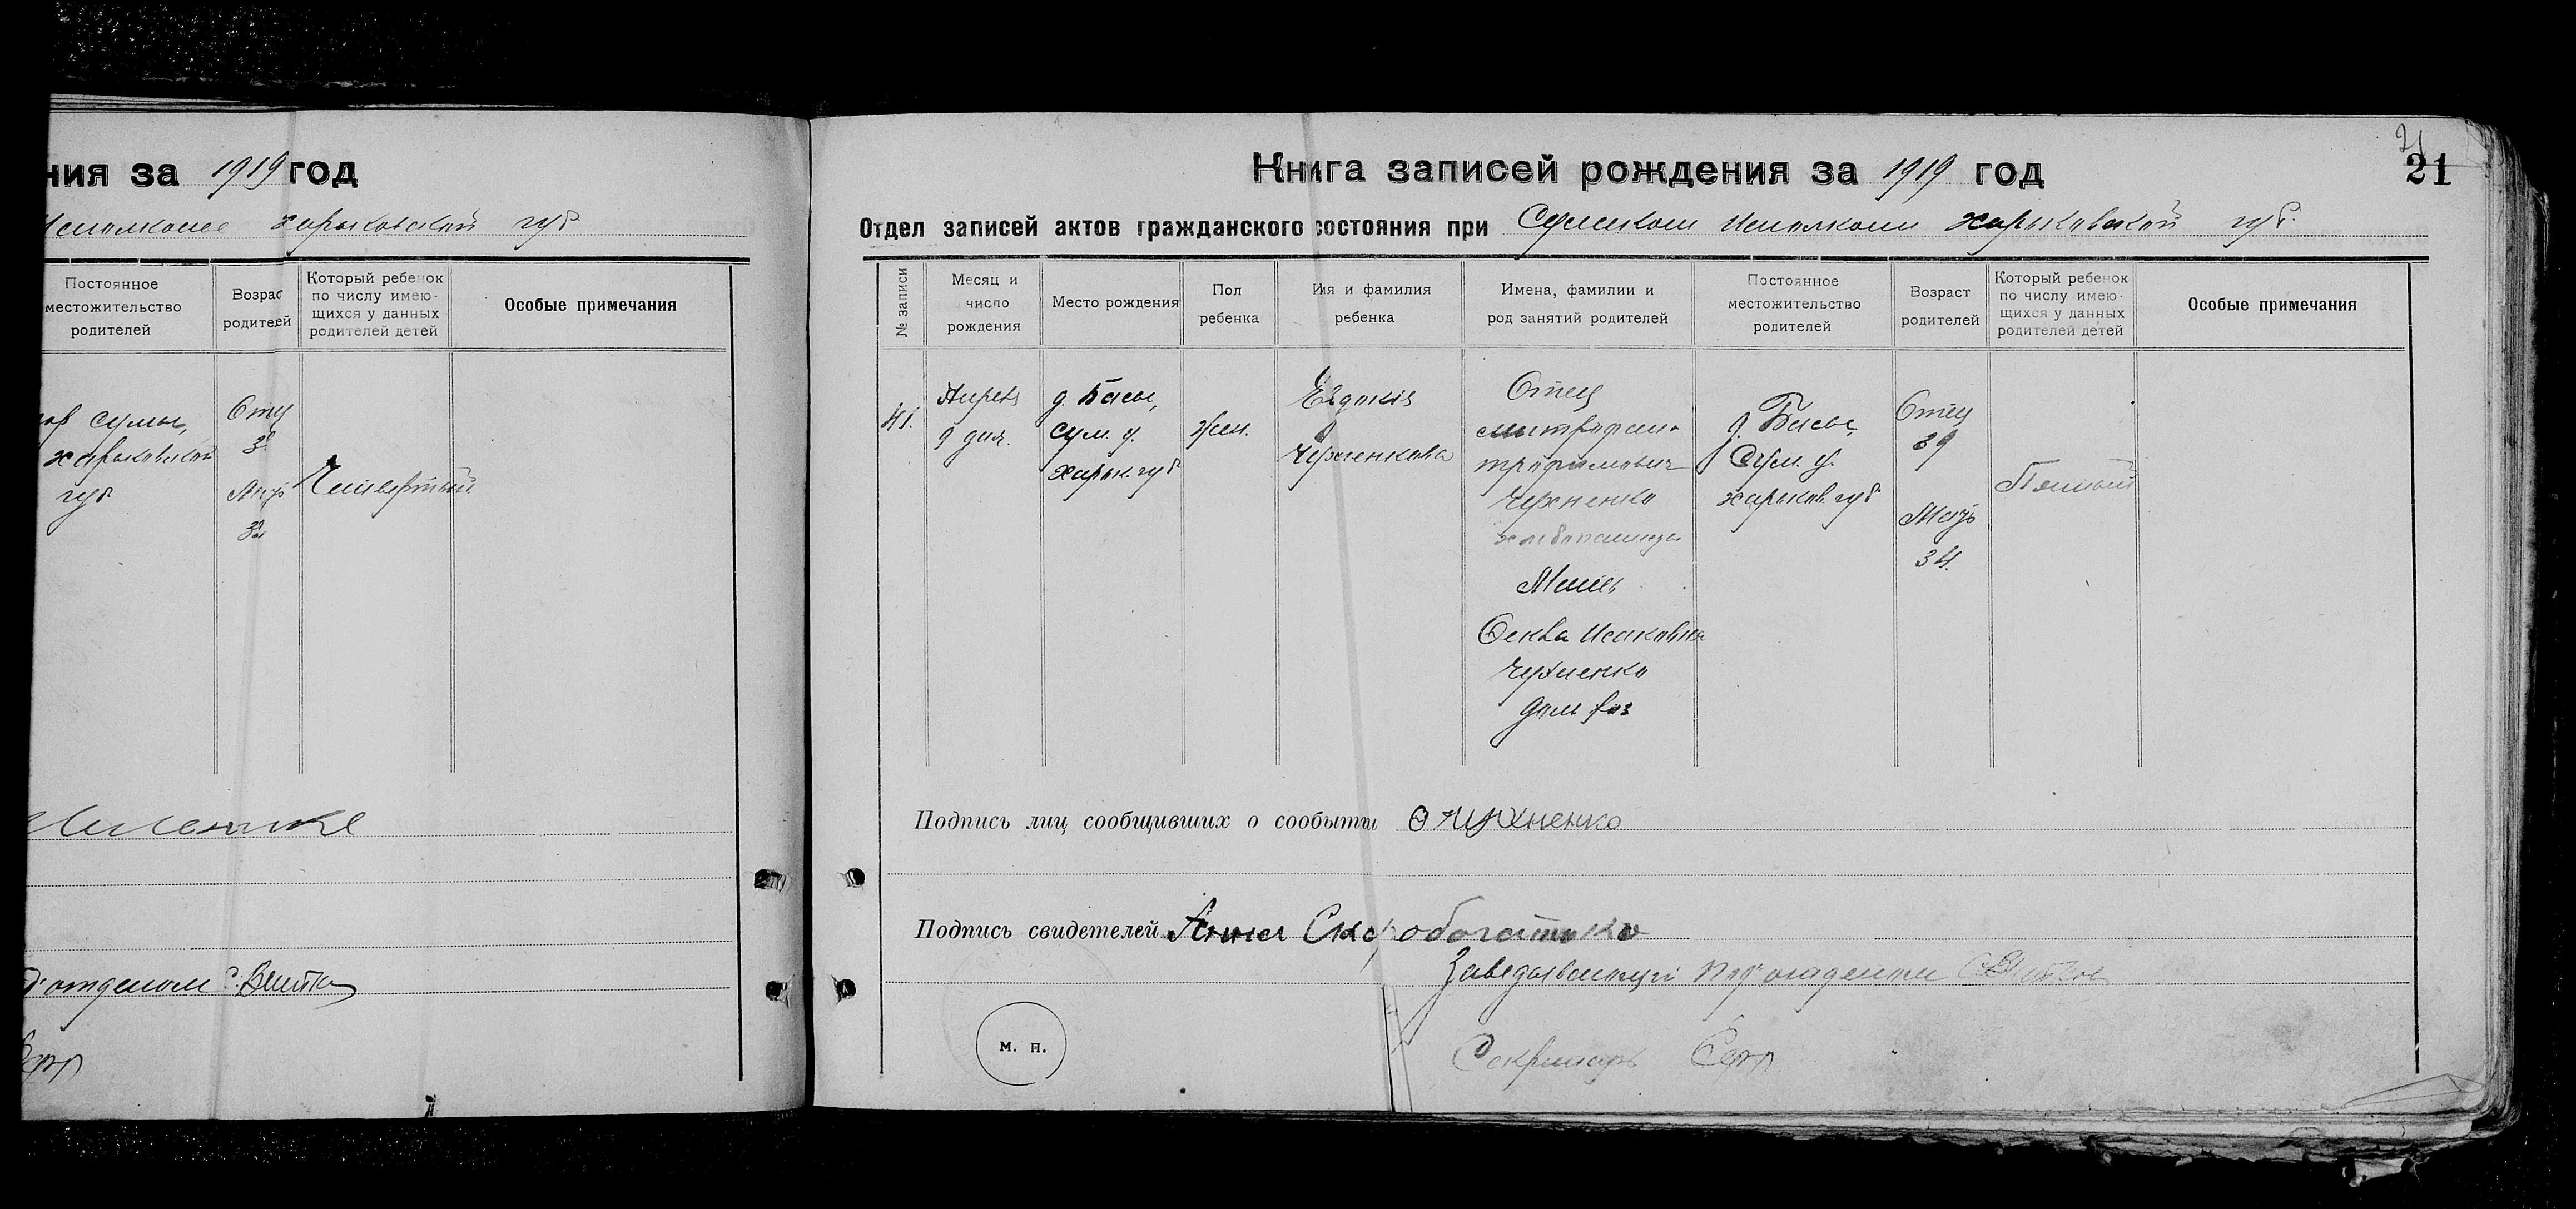 ния за 1919 год
Исполкоме Харьковской губ
Постоянное местожительство родителей
Возраст родителей
Который ребенок по числу имеющихся у данных родителей детей
Особые примечания
гор Сумы,
Харьковской
губ
Отец
Четвертый
отделом
Книга записей рождения за 1919 год
21
21
Отдел записей актов гражданского состояния при Сумском Исполкоми Харьковской губ.
№ записи
Месяц и число рождения
Место рождения
Пол ребенка
Имя и фамилия ребенка
Имена, фамилии и род занятий родителей
Постоянное местожительство родителей
Возраст родителей
Который ребенок по числу имеющихся у данных родителей детей
Особые примечания
41.
Апреля
9 дня.
д. Басы,
Сум. у.
Харьк. губ
жен.
Евдокія
Отец
Митрофан
Трофимович
Чухненко
хлебопашец
Мать
Исаковна
Чухненко
д. Басы,
Сум. у.
Харьков. губ
Отец
39
Мать
34.
Пятый
Подпись лиц сообщивших о сообытии Чухненко
Подпись свидетелей Анна Скоробогатько
Заведывающий подотделом
М. П.
Секретарь